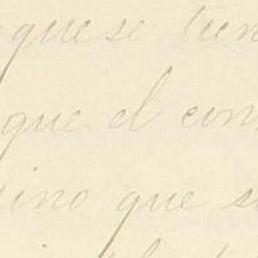 que se tien
que el con
ino que s